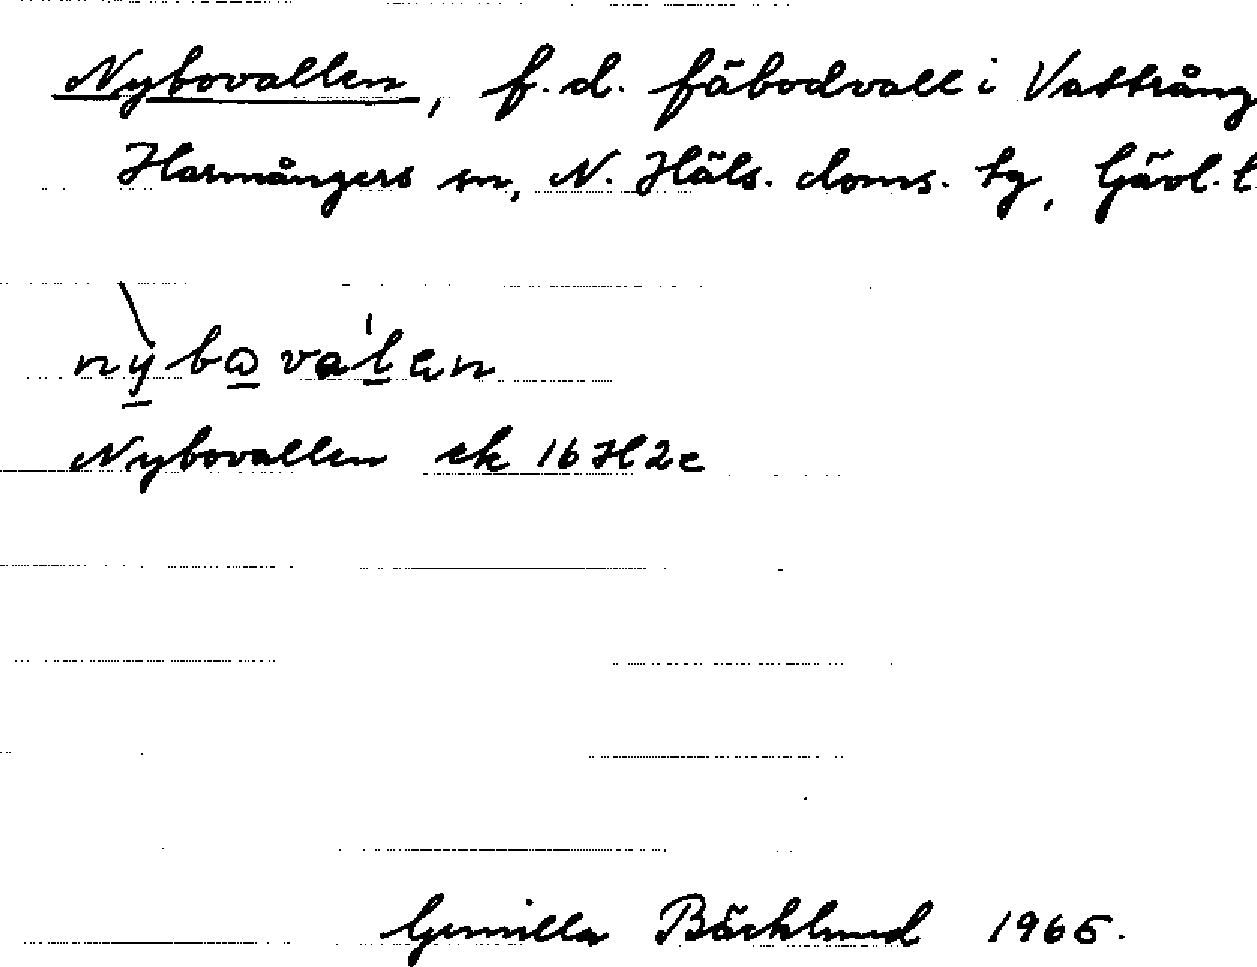 Nybovallen, f.d. fäbodvall i Vattrång
Harmångers sn, N. Häls. doms. tg, Gävl. l
Nybovallen ek 16H2c
Gunilla Bäcklund 1965.